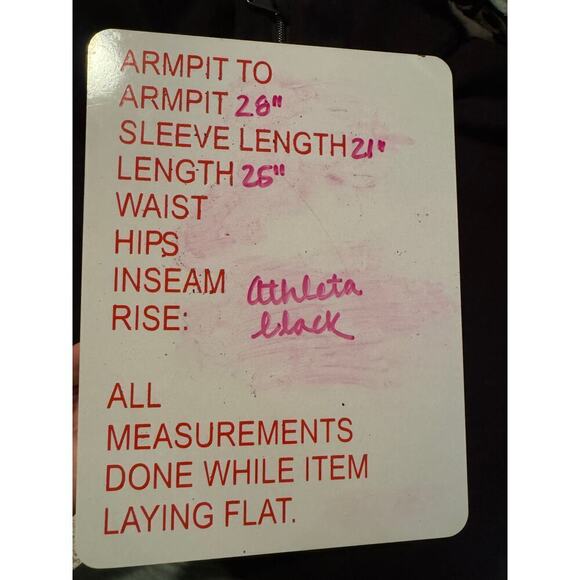 ARMPIT TO
ARMPIT 28"
SLEEVE LENGTH 21"
LENGTH 25"
WAIST
HIPS
INSEAM
RISE:
Athleta
black
ALL
MEASUREMENTS
DONE WHILE ITEM
LAYING FLAT.